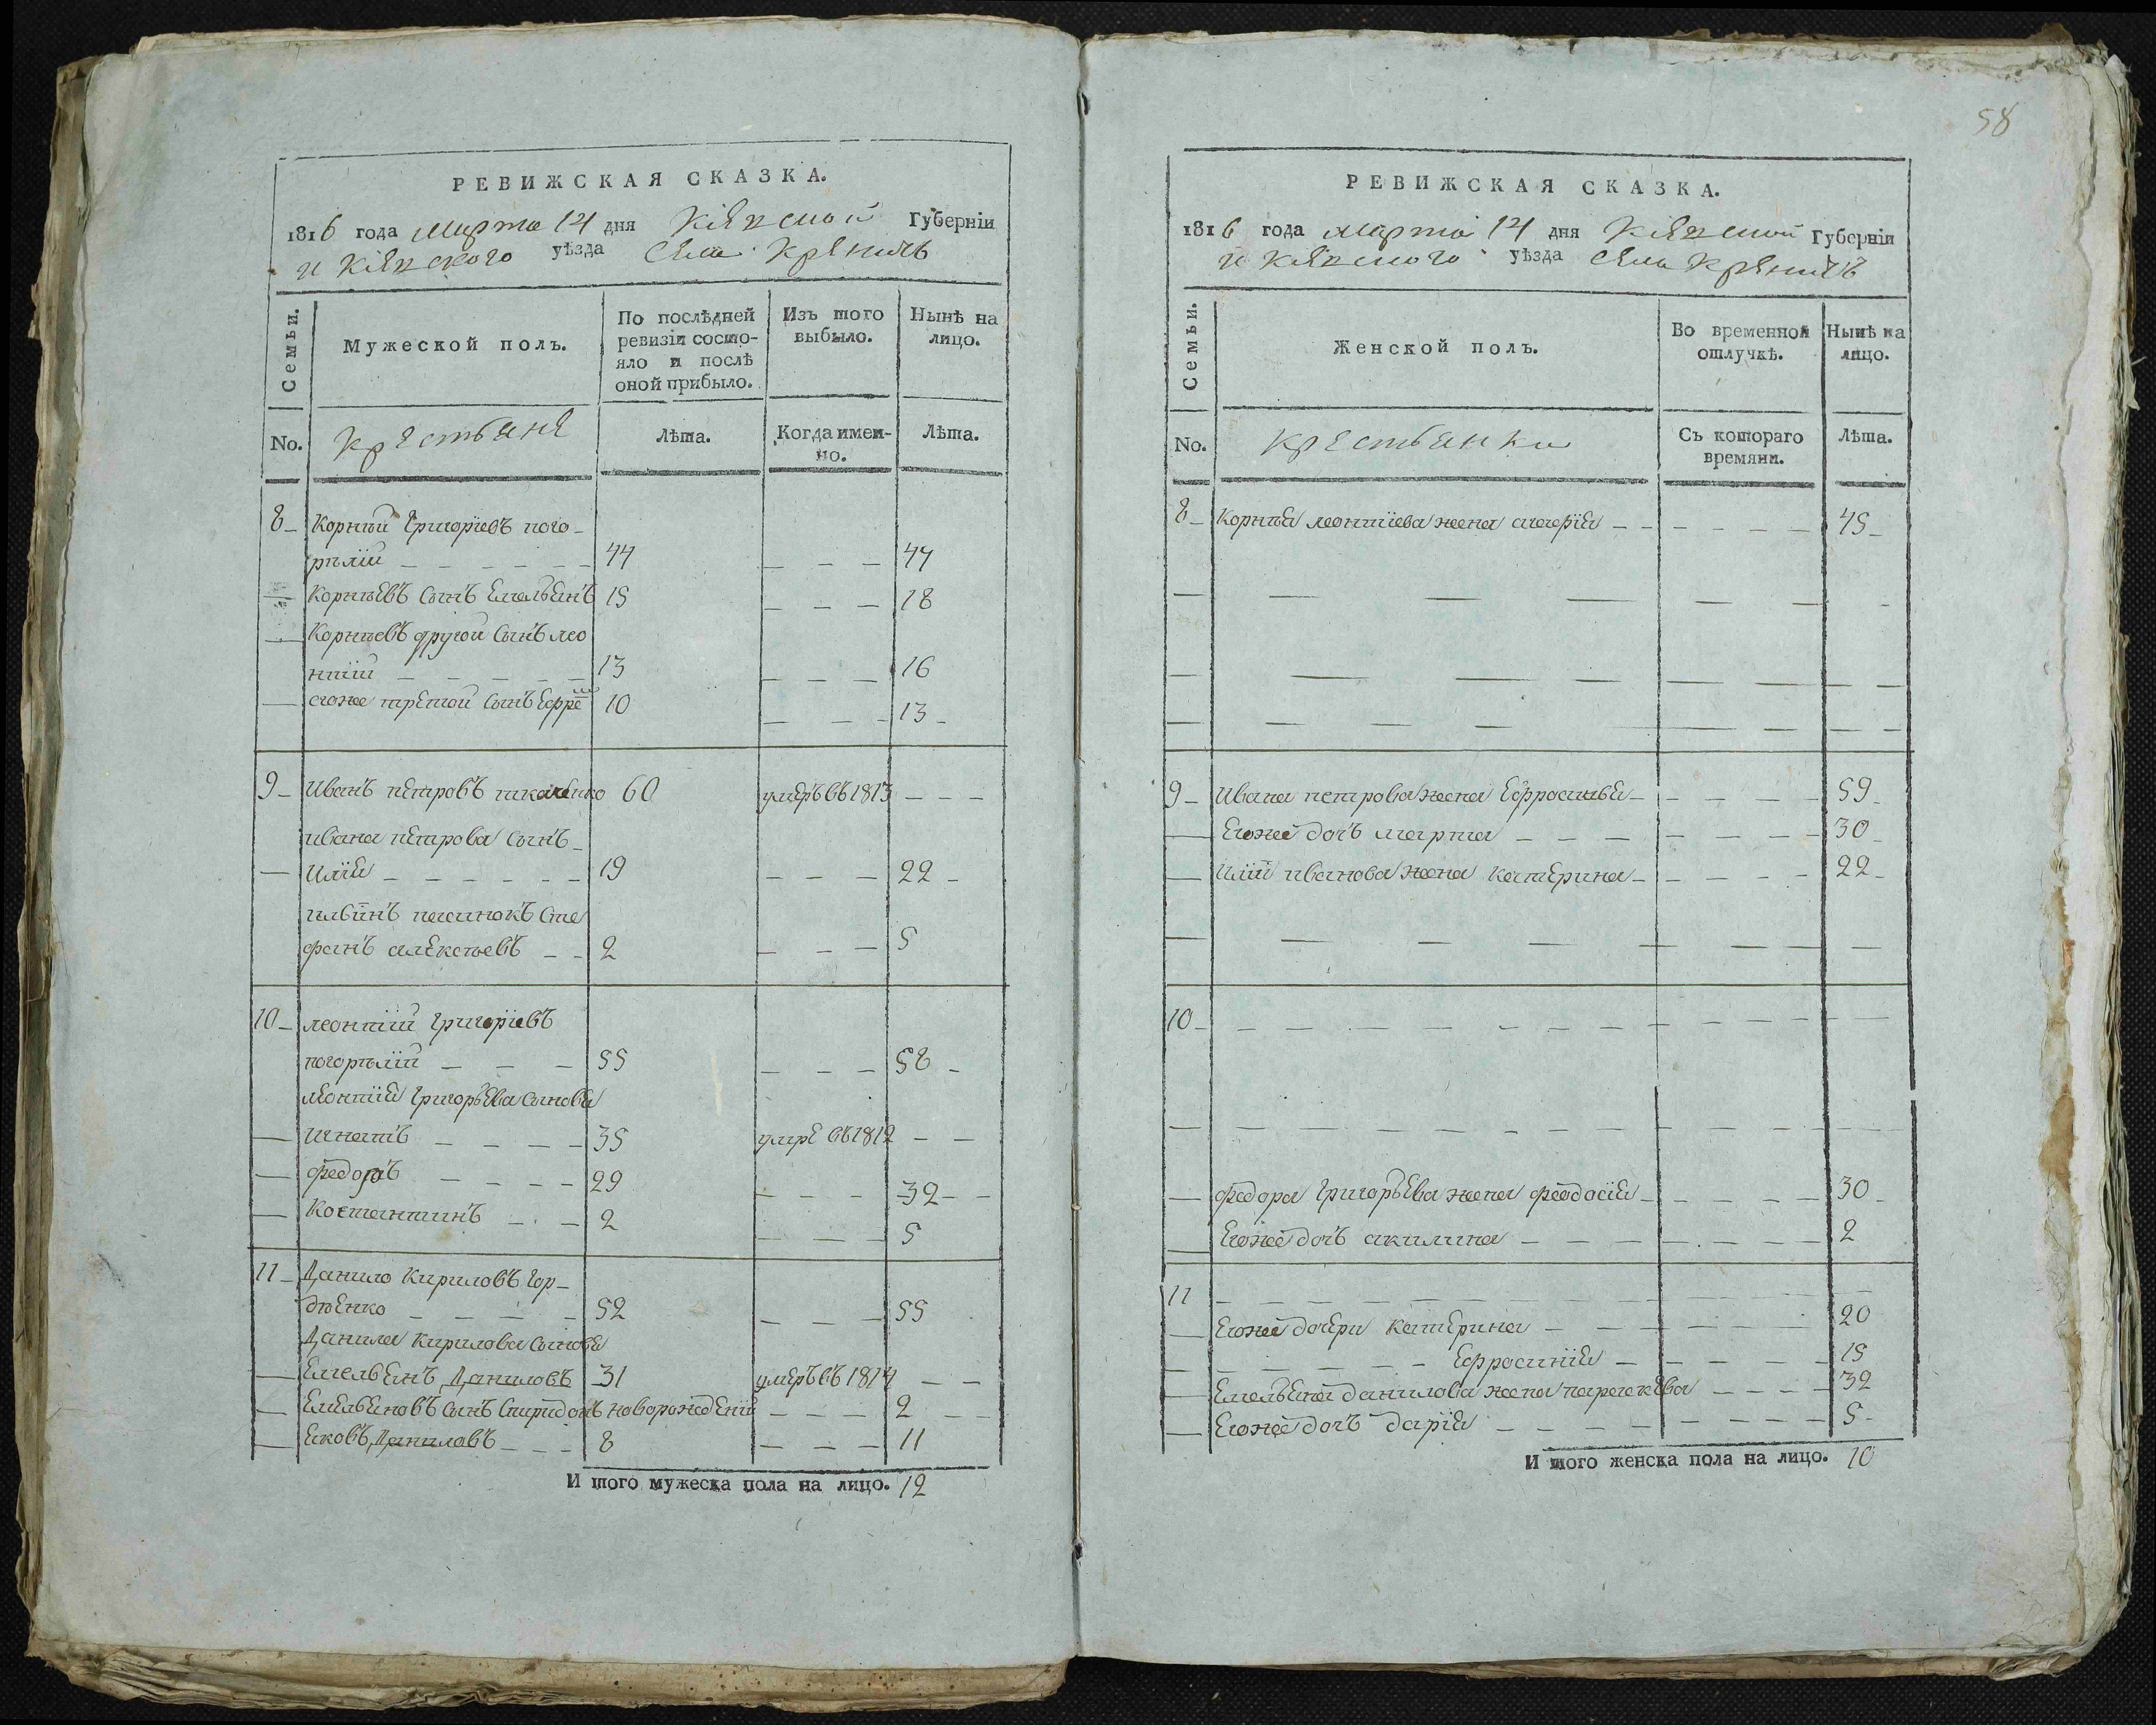 РЕВИЖСКАЯ СКАЗКА.
1816 года марта 14 дня Кіевской Губерніи
и Кіевского уѣзда Села Кренычъ
Семьи. Мужеской полъ. По послѣдней ревизіи состо- Изъ того Нынѣ на
яло и послѣ оной прибыло. выбыло. лицо.
No. Крестьяне Лѣта. Когда имен- Лѣта.
но.
8 Корнѣй Григоріевъ пого-
рѣлій 44 47
Корнѣевъ Сынъ Емельянъ 15 18
Корнѣевъ другой Сынъ лео
нтій 13 16
егоже третой Сынъ Ефрем 10 13
9 Иванъ петровъ ткаченко 60 умеръ въ 1813
ивана петрова Сынъ
Илія 19 22
ильинъ пасинокъ Сте
фанъ алексѣевъ 2 5
10 леонтій Григоріевъ
погорѣлій 55 58
леонтія Григорьева Синовя
Игнатъ 35 умре въ 1812
федоръ 29 32
Костантинъ 2 5
11 Данило Кириловъ Гор-
дѣенко 52 55
Данила Кирилова Синовя
Емельянъ Даниловъ 31 умеръ въ 1814
Емельяновъ Сынъ Спиридонъ новорожденій 2
Яковъ Даниловъ 8 11
И того мужеска пола на лицо. 12
58
РЕВИЖСКАЯ СКАЗКА.
1816 года марта 14 дня Кіевской Губерніи
и Кіевского уѣзда Села Кренычъ
Семьи. Женской полъ. Во временной Нынѣ на
отлучкѣ. лицо.
No. Крестьянки Съ котораго Лѣта.
времяни.
8 Корнѣя леонтіева жена марія 45
9 Ивана петрова жена Ефросинья 59
Егоже дочь марта 30
Иліи иванова жена Катерина 22
10
федора Григорьева жена феодосія 30
Егоже дочь акилина 2
11
Егоже дочери Катерина 20
Ефросинія 15
Емельяна данилова жена параскева 32
Егоже дочь дарія 5
И того женска пола на лицо. 10